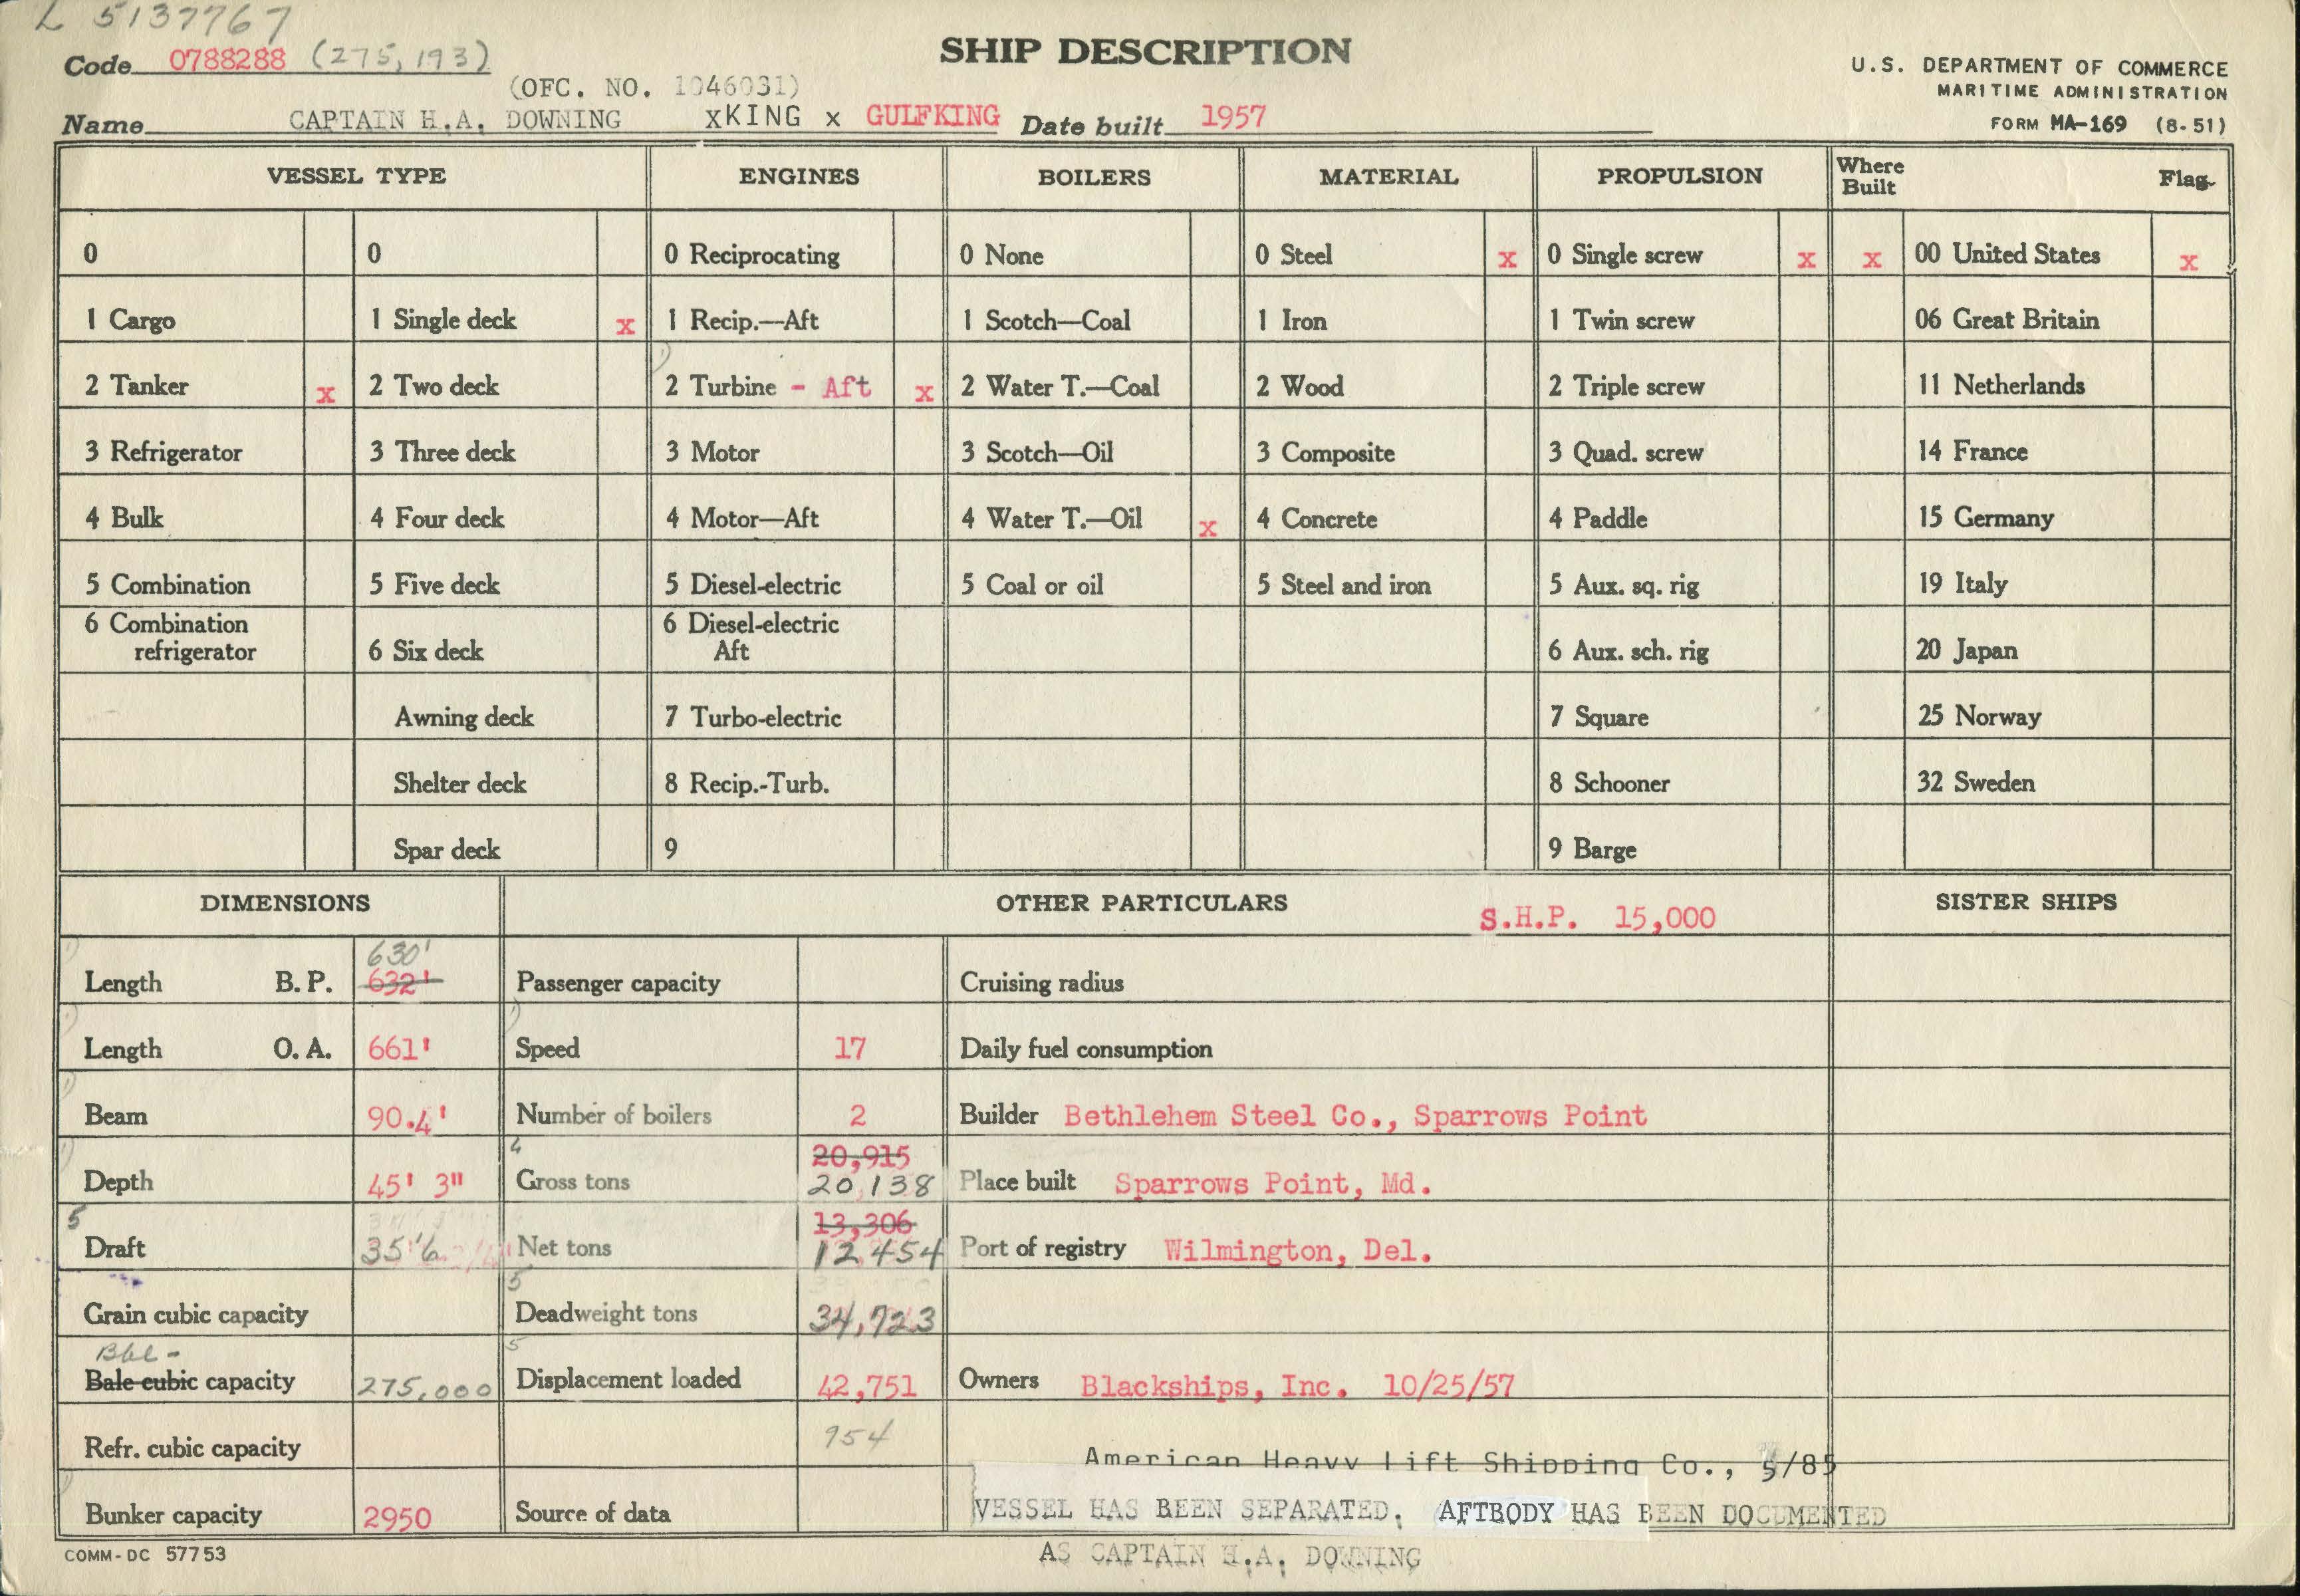 L 5137767
Code 0788288 (275,193)
SHIP DESCRIPTION
U.S. DEPARTMENT OF COMMERCE
MARITIME ADMINISTRATION
FORM MA-169 (8-51)
(OFC. NO. 1046031)
Name CAPTAIN H.A. DOWNING xKING x GULFKING Date built 1957
VESSEL TYPE ENGINES BOILERS MATERIAL PROPULSION Where Built Flag
0 0 0 Reciprocating 0 None 0 Steel x 0 Single screw x x 00 United States x
1 Cargo 1 Single deck x 1 Recip.—Aft 1 Scotch—Coal 1 Iron 1 Twin screw 06 Great Britain
2 Tanker x 2 Two deck 2 Turbine - Aft x 2 Water T.—Coal 2 Wood 2 Triple screw 11 Netherlands
3 Refrigerator 3 Three deck 3 Motor 3 Scotch—Oil 3 Composite 3 Quad. screw 14 France
4 Bulk 4 Four deck 4 Motor—Aft 4 Water T.—Oil x 4 Concrete 4 Paddle 15 Germany
5 Combination 5 Five deck 5 Diesel-electric 5 Coal or oil 5 Steel and iron 5 Aux. sq. rig 19 Italy
6 Combination refrigerator 6 Six deck 6 Diesel-electric Aft 6 Aux. sch. rig 20 Japan
Awning deck 7 Turbo-electric 7 Square 25 Norway
Shelter deck 8 Recip.-Turb. 8 Schooner 32 Sweden
Spar deck 9 9 Barge
DIMENSIONS OTHER PARTICULARS S.H.P. 15,000 SISTER SHIPS
630'
Length B.P. 632' Passenger capacity Cruising radius
Length O.A. 661' Speed 17 Daily fuel consumption
Beam 90.4' Number of boilers 2 Builder Bethlehem Steel Co., Sparrows Point
4 20,915
Depth 45' 3" Gross tons 20,138 Place built Sparrows Point, Md.
5 13,306
Draft 35'6 Net tons 12,454 Port of registry Wilmington, Del.
5
Grain cubic capacity Deadweight tons 34,723
Bbl - 5
Bale cubic capacity 275,000 Displacement loaded 42,751 Owners Blackships, Inc. 10/25/57
Refr. cubic capacity 954 American Heavy Lift Shipping Co., 5/85
Bunker capacity 2950 Source of data VESSEL HAS BEEN SEPARATED. AFTBODY HAS BEEN DOCUMENTED
COMM-DC 57753 AS CAPTAIN H.A. DOWNING